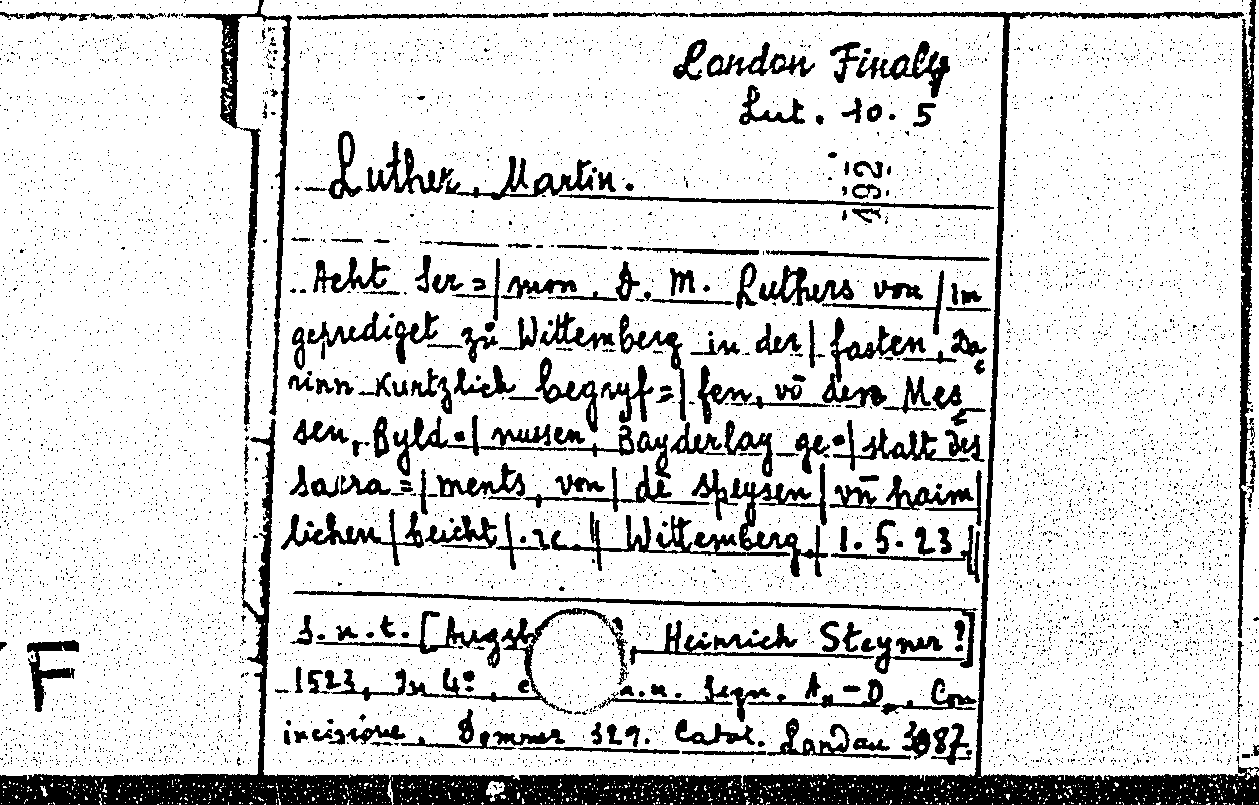 Landau Finaly
Lut. 10. 5
192
Luther, Martin.
Acht Ser=|mon. D. M. Luthers von | Im
geprediget zů Wittemberg in der | fasten, Da
rinn kurtzlich begryf=|fen, vō dem Mes
sen, Byld=|nussen, Bayderlay ge=|stalt des
Sacra=|ments, von | dē speysen | vn̄ haim
lichen | beicht | .rc. || Wittemberg, | 1.5.23.||
S. n. t. Heinrich Steyner?]
1523, In 4º, n.n. Segn. A,,-D,,. Con
incisione. Dommer 329. Catal. Landau
F